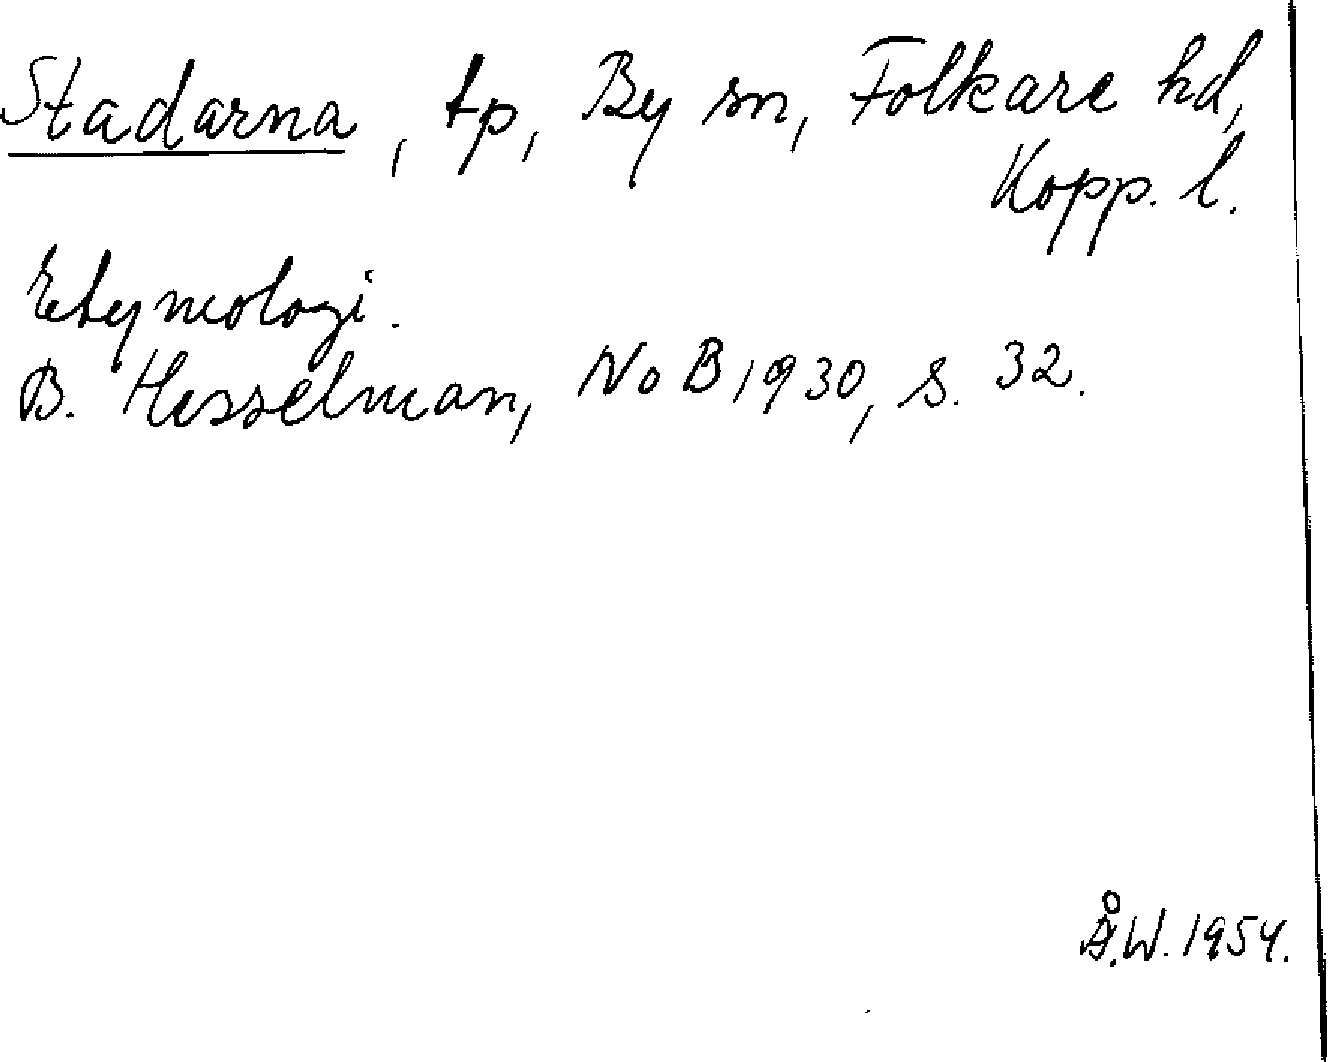 Stadarna, tp, By sn, Folkare hd,
Kopp. l.
Etymologi.
B. Hesselman, NoB 1930, s. 32.
Å.W. 1954.